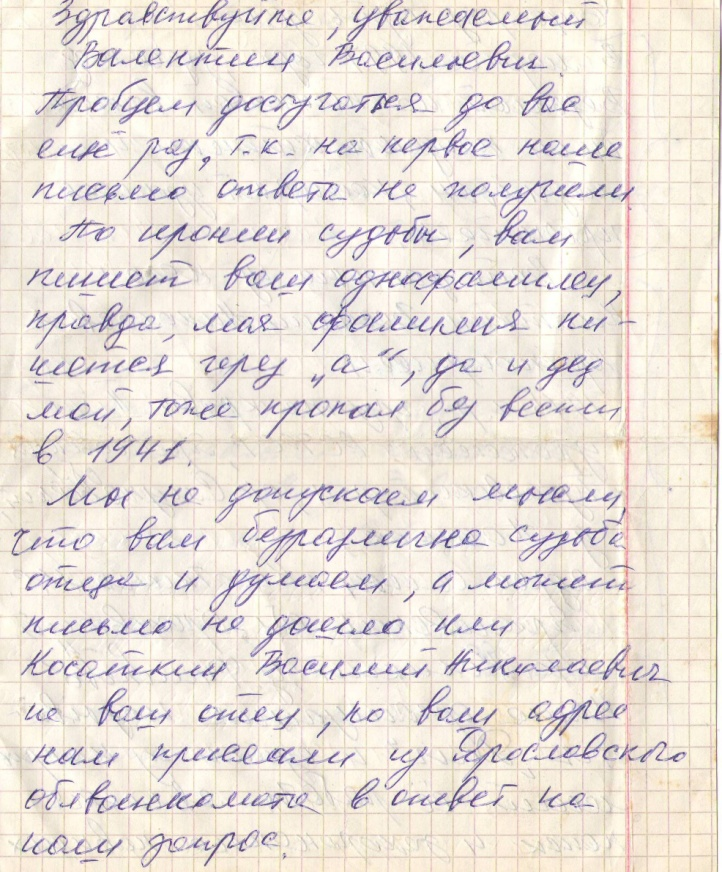 Здравствуйте, уважаемый
Валентин Васильевич.
Пробуем достучаться до вас
ещё раз, т.к. на первое наше
письмо ответа не получили
По иронии судьбы, вам
пишет ваш однофамилец,
правда, моя фамилия пи-
шется через „а“, да и дед
мой, тоже пропал без вести
в 1941.
Мы не допускаем мысли,
что вам безразлична судьба
отца и думаем, а может
письмо не дошло или
Косаткин Василий Николаевич
не ваш отец, но ваш адрес
нам прислали из Ярославского
облвоенкомата в ответ на
наш запрос.